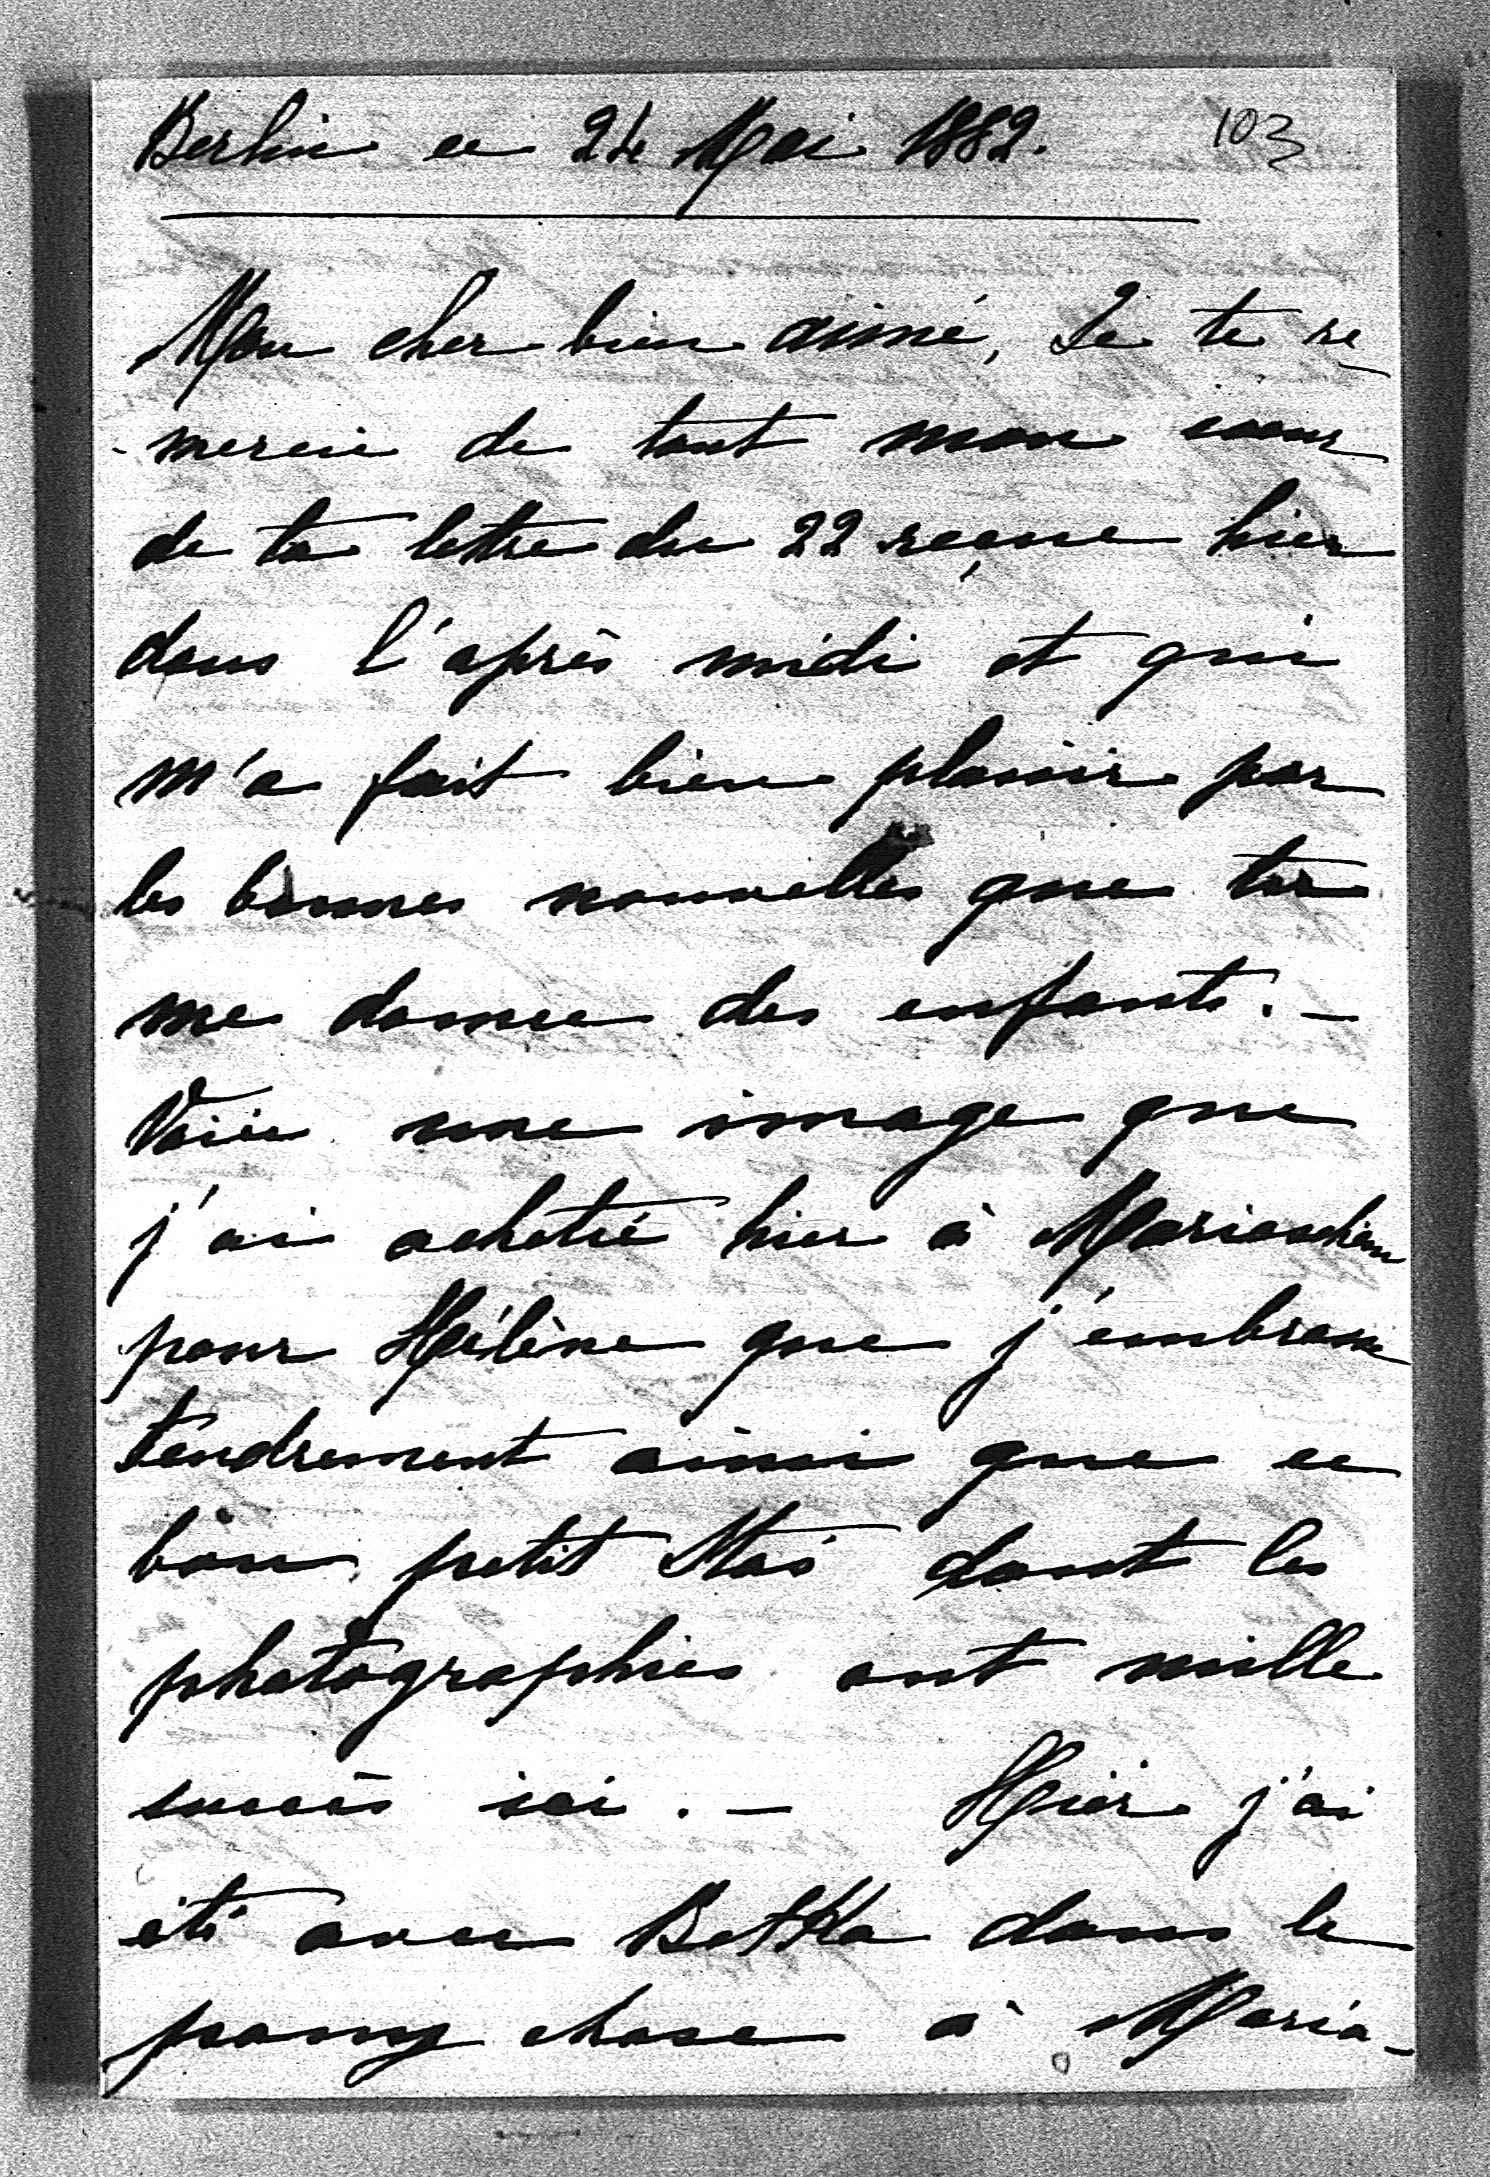 Berlin ce 24 Mai 1882. 103
Mon cher bien aimé, Je te re
-mercie de tout mon coeur
de ta lettre du 22 reçue hier
dans l'après midi et qui
m'a fait bien plaisir par
les bonnes nouvelles que tu
me donnes des enfants. —
Voici une image que
j'ai acheté hier à Mariaschein
pour Hélène que j'embrasse
tendrement ainsi que ce
bon petit Stas dont les
photographies ont mille
succès ici. — Hier j'ai
été avec Betka dans le
pony chase à Maria-